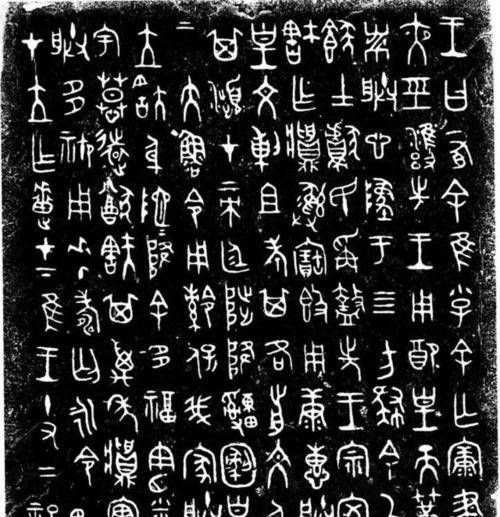 王曰有余隹小子余亡康晝
夜巠雍先王用配皇天簧
朕心墜于四方肆余
士獻民爯盩先王宗室
㝬作彝寶簋用康惠朕
皇文剌且考其各前文人
其瀕才帝廷陟降皇
帝大魯令用保我家朕
立㝬身阤降余多福
宇慕遠猷㝬其萬年實
朕多禦用壽匄永令
才立作疐才下隹王十又二祀